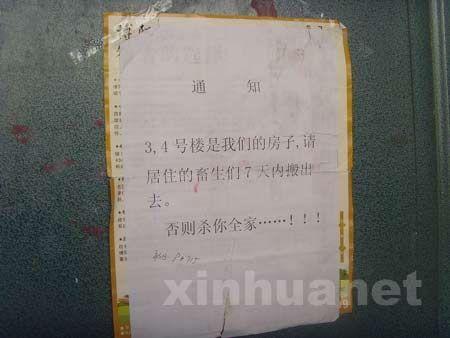 通 知
3,4号楼是我们的房子,请
居住的畜生们7天内搬出
去。
否则杀你全家……!!!
xinhuanet